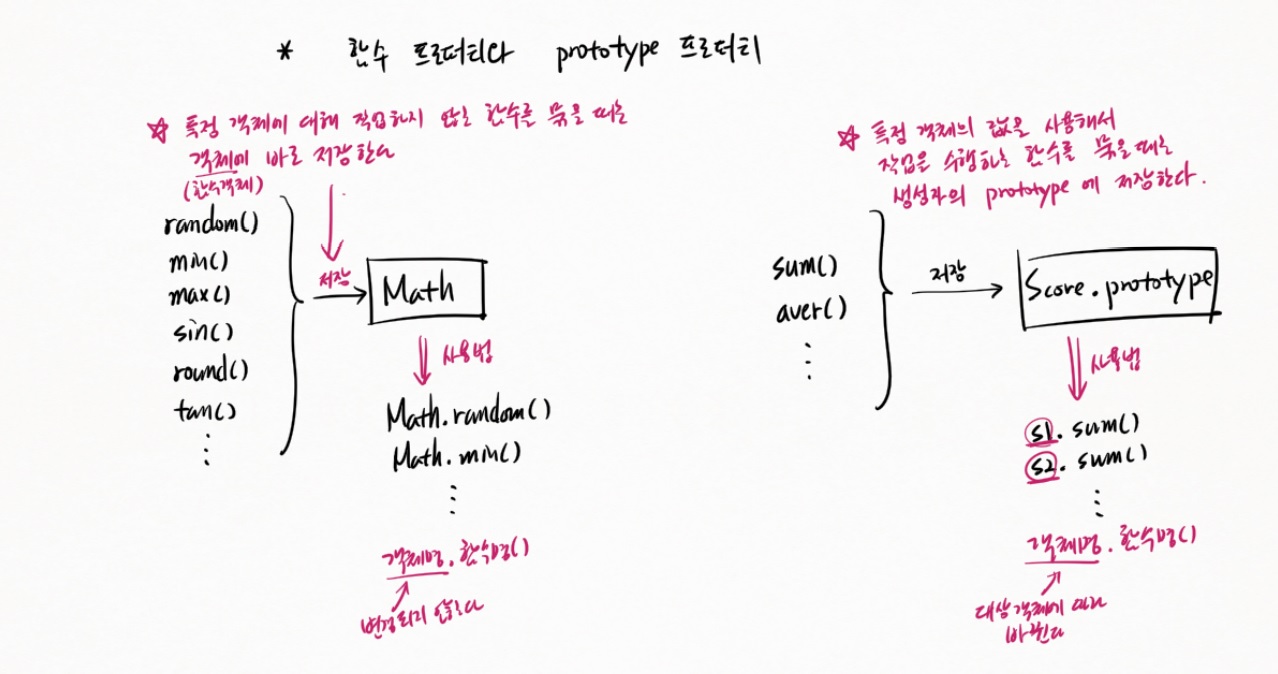 * 함수 프로퍼티와 prototype 프로퍼티
☆ 특정 객체에 대해 작업하지 않는 함수를 묶을 때는
객체에 바로 저장한다
(함수객체)
random()
min()
max()
sin()
round()
tan()
⋮
저장
Math
사용법
Math.random()
Math.min()
⋮
객체명.함수명()
변경되지 않는다
☆ 특정 객체의 값을 사용해서
작업을 수행하는 함수를 묶을 때는
생성자의 prototype에 저장한다.
sum()
aver()
⋮
저장
Score.prototype
사용법
s1.sum()
s2.sum()
⋮
객체명.함수명()
대상객체에 따라
바뀐다